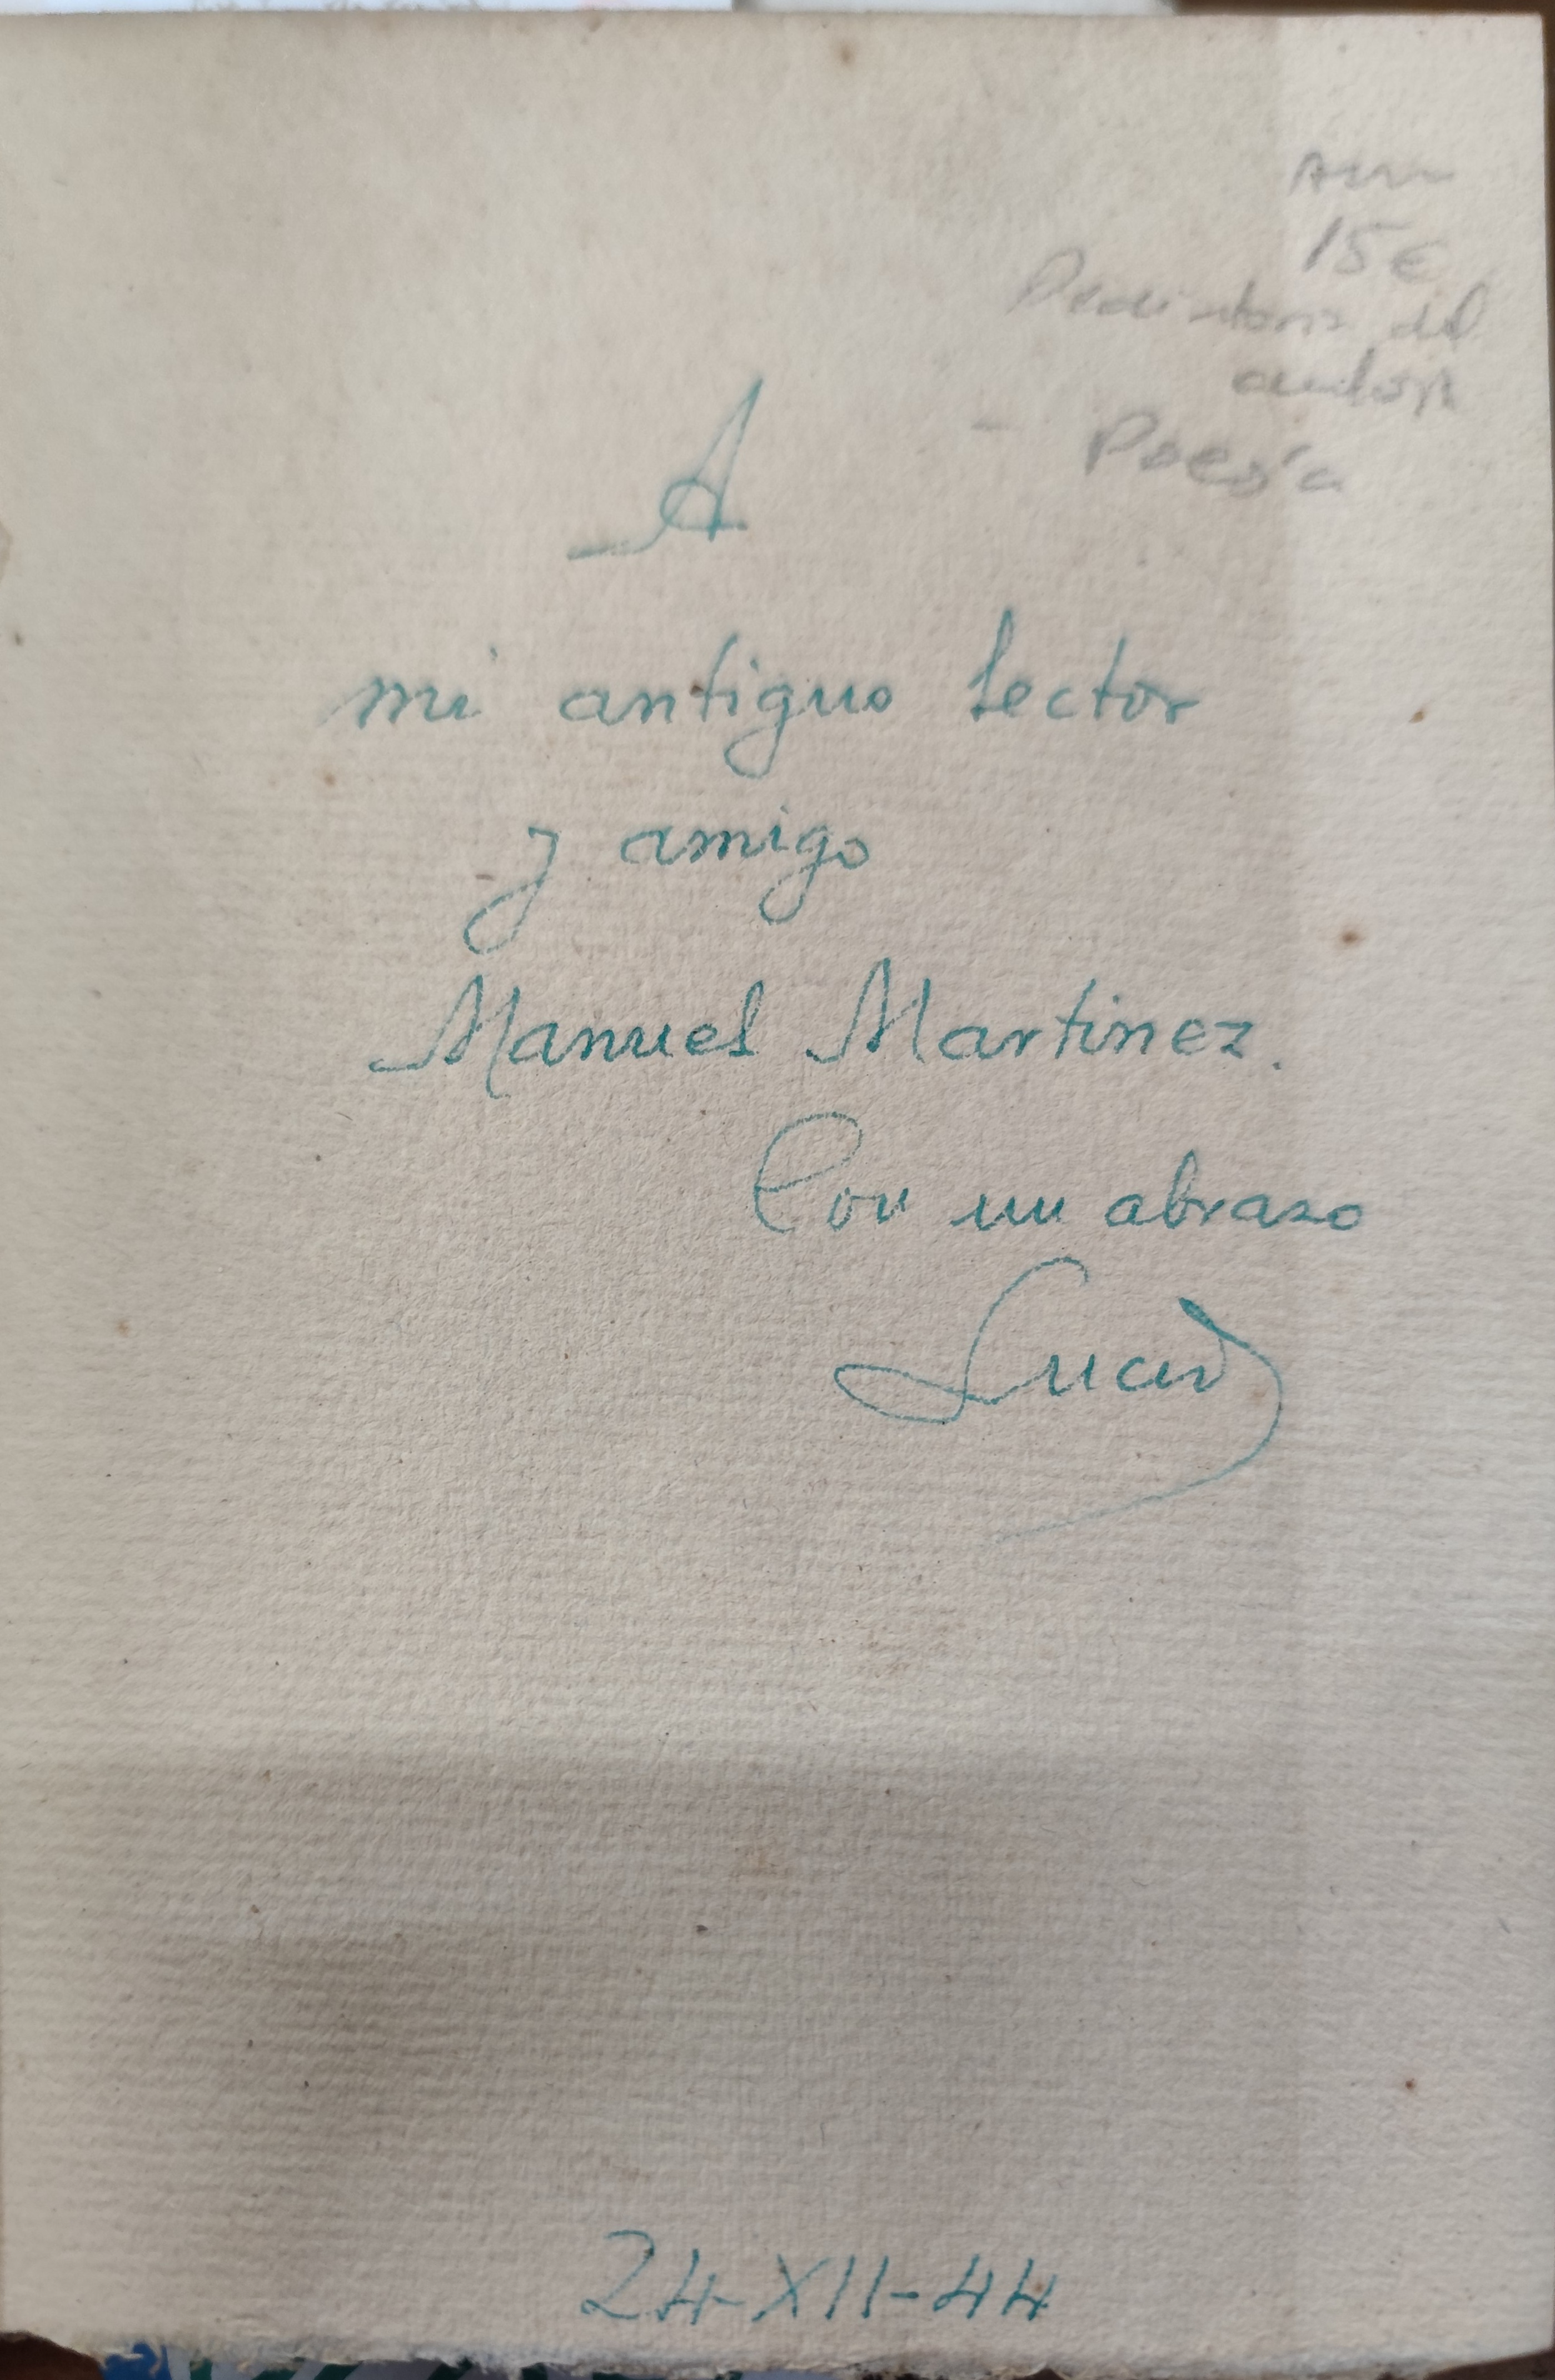 15€
Dedicatoria del
autor
- Poesía
A
mi antiguo lector
y amigo
Manuel Martinez.
Con un abrazo
24-XII-44